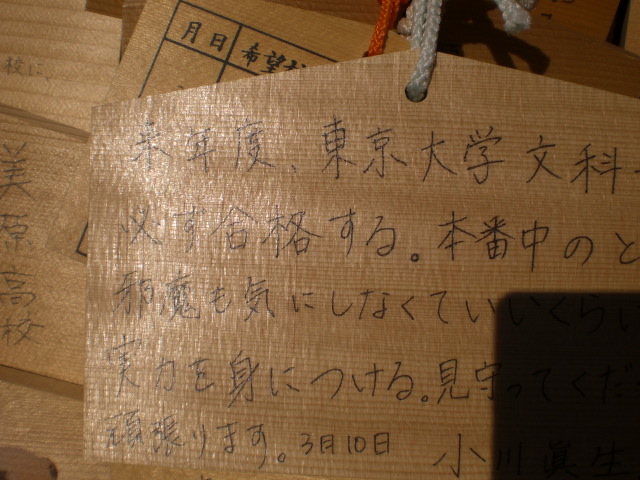 月日
希望
校に、
美原高校
来年度、東京大学文科一
必ず合格する。本番中のと
邪魔も気にしなくていいくらい
実力を身につける。見守ってくだ
頑張ります。3月10日 小川眞生